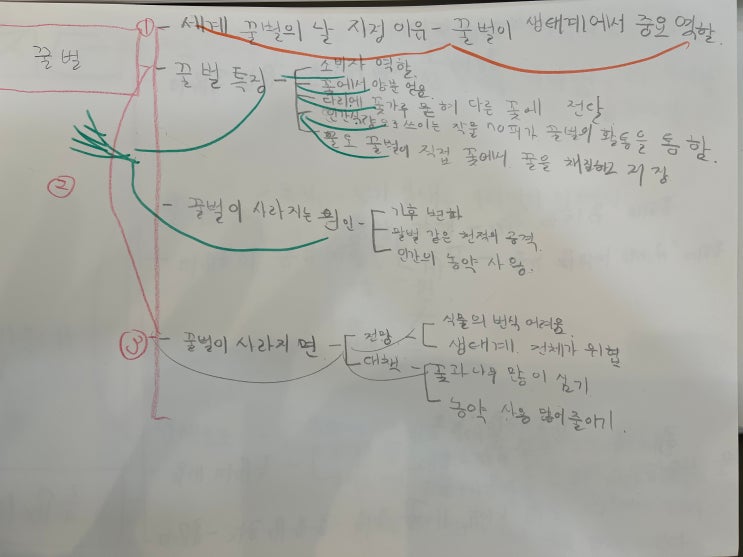 꿀벌
① - 세계 꿀벌의 날 지정 이유 - 꿀벌이 생태계에서 중요 역할.
- 꿀벌 특징 - 소비자 역할.
꽃에서 양분 얻음.
다리에 꽃가루 묻혀 다른 꽃에 전달
쓰이는 작물 70퍼가 꿀벌의 활동을 통함.
꿀도 꿀벌이 직접 꽃에서 꿀을 채집하고 저장
②
- 꿀벌이 사라지는 원인 - 기후 변화
말벌 같은 천적의 공격.
인간의 농약 사용.
③ - 꿀벌이 사라지면 - 전망 - 식물의 번식 어려움.
생태계 전체가 위협
대책 - 꽃과 나무 많이 심기
농약 사용 줄이기.